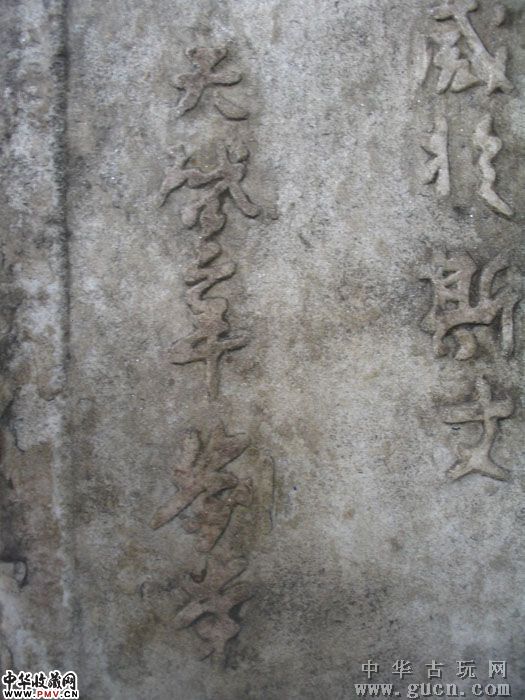 感於斯文
天啓二年
中华收藏网
WWW.PMV.CN
中华古玩网
www.gucn.com